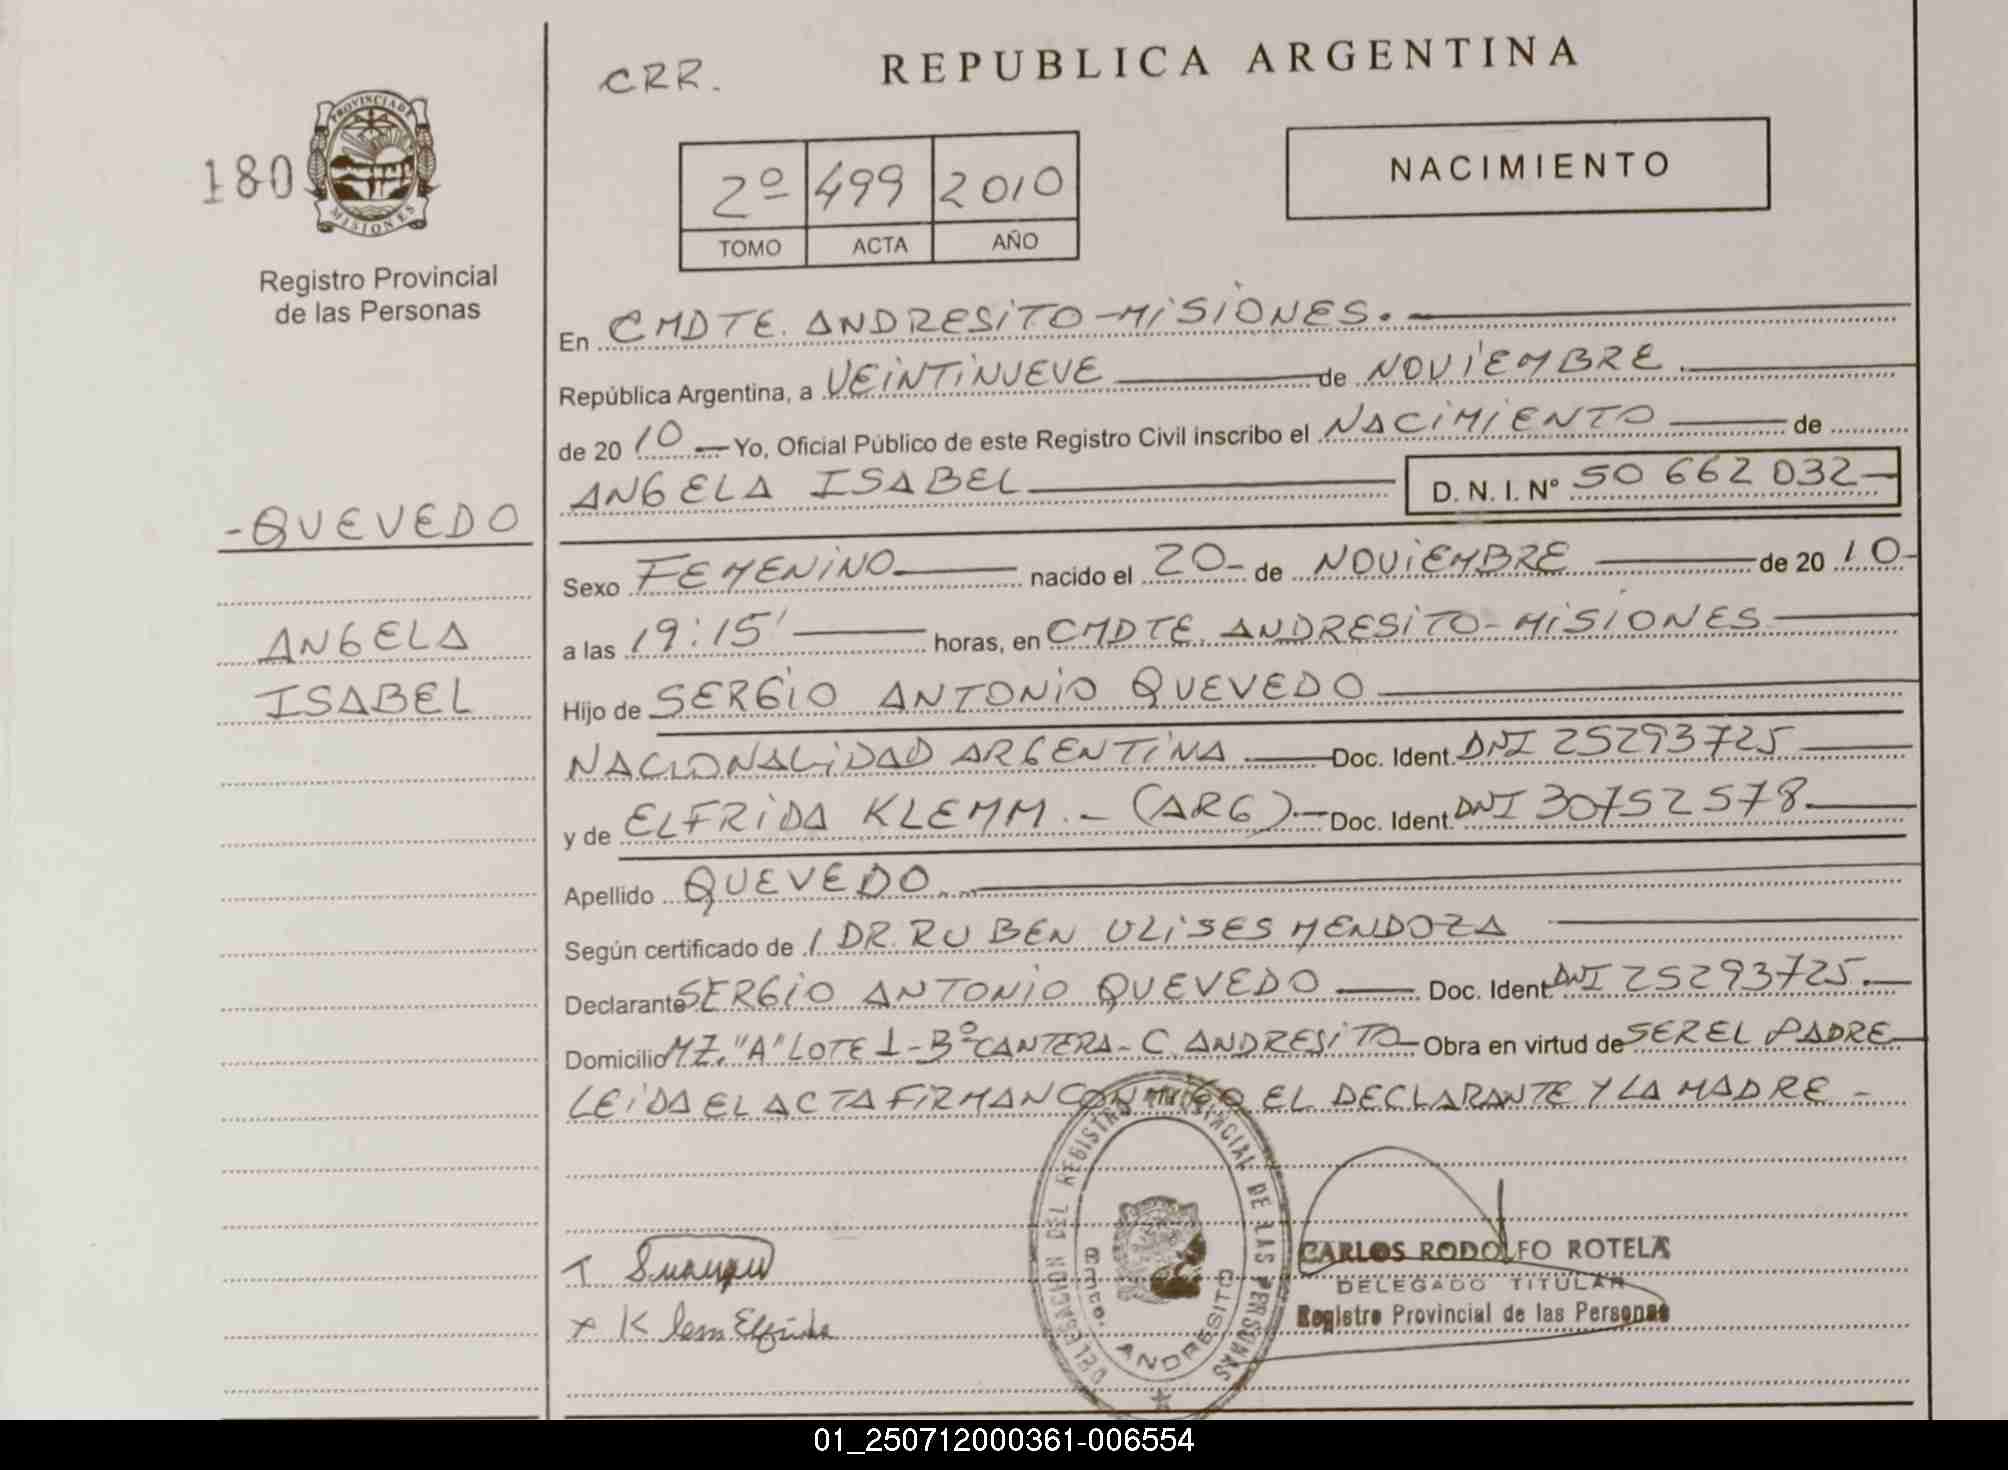 CRR.
REPUBLICA ARGENTINA
180
PROVINCIA DE
MISIONES
Registro Provincial
de las Personas
2º 499 2010
TOMO ACTA AÑO
NACIMIENTO
En CMDTE. ANDRESITO-MISIONES.
República Argentina, a VEINTINUEVE de NOVIEMBRE.
de 2010 Yo, Oficial Público de este Registro Civil inscribo el NACIMIENTO de
ANGELA ISABEL D. N. I. Nº 50 662 032
-QUEVEDO
ANGELA
ISABEL
Sexo FEMENINO nacido el 20- de NOVIEMBRE de 2010-
a las 19:15' horas, en CMDTE. ANDRESITO-MISIONES
Hijo de SERGIO ANTONIO QUEVEDO
NACIONALIDAD ARGENTINA Doc. Ident. DNI 25293725
y de ELFRIDA KLEMM.- (ARG).- Doc. Ident. DNI 30752578.
Apellido QUEVEDO
Según certificado de DR. RUBEN ULISES MENDOZA
Declarante SERGIO ANTONIO QUEVEDO Doc. Ident. DNI 25293725.
Domicilio MZ. "A" LOTE 1-Bº CANTERA-C. ANDRESITO Obra en virtud de SER EL PADRE
LEIDA EL ACTA FIRMAN CONMIGO EL DECLARANTE Y LA MADRE -
DELEGACION DEL REGISTRO PROVINCIAL DE LAS PERSONAS
Bmte. ANDRESITO
K lem Elfrida
CARLOS RODOLFO ROTELA
DELEGADO TITULAR
Registro Provincial de las Personas
01_250712000361-006554